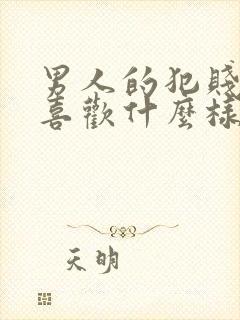 男人的犯賤
喜歡什麼樣
天明